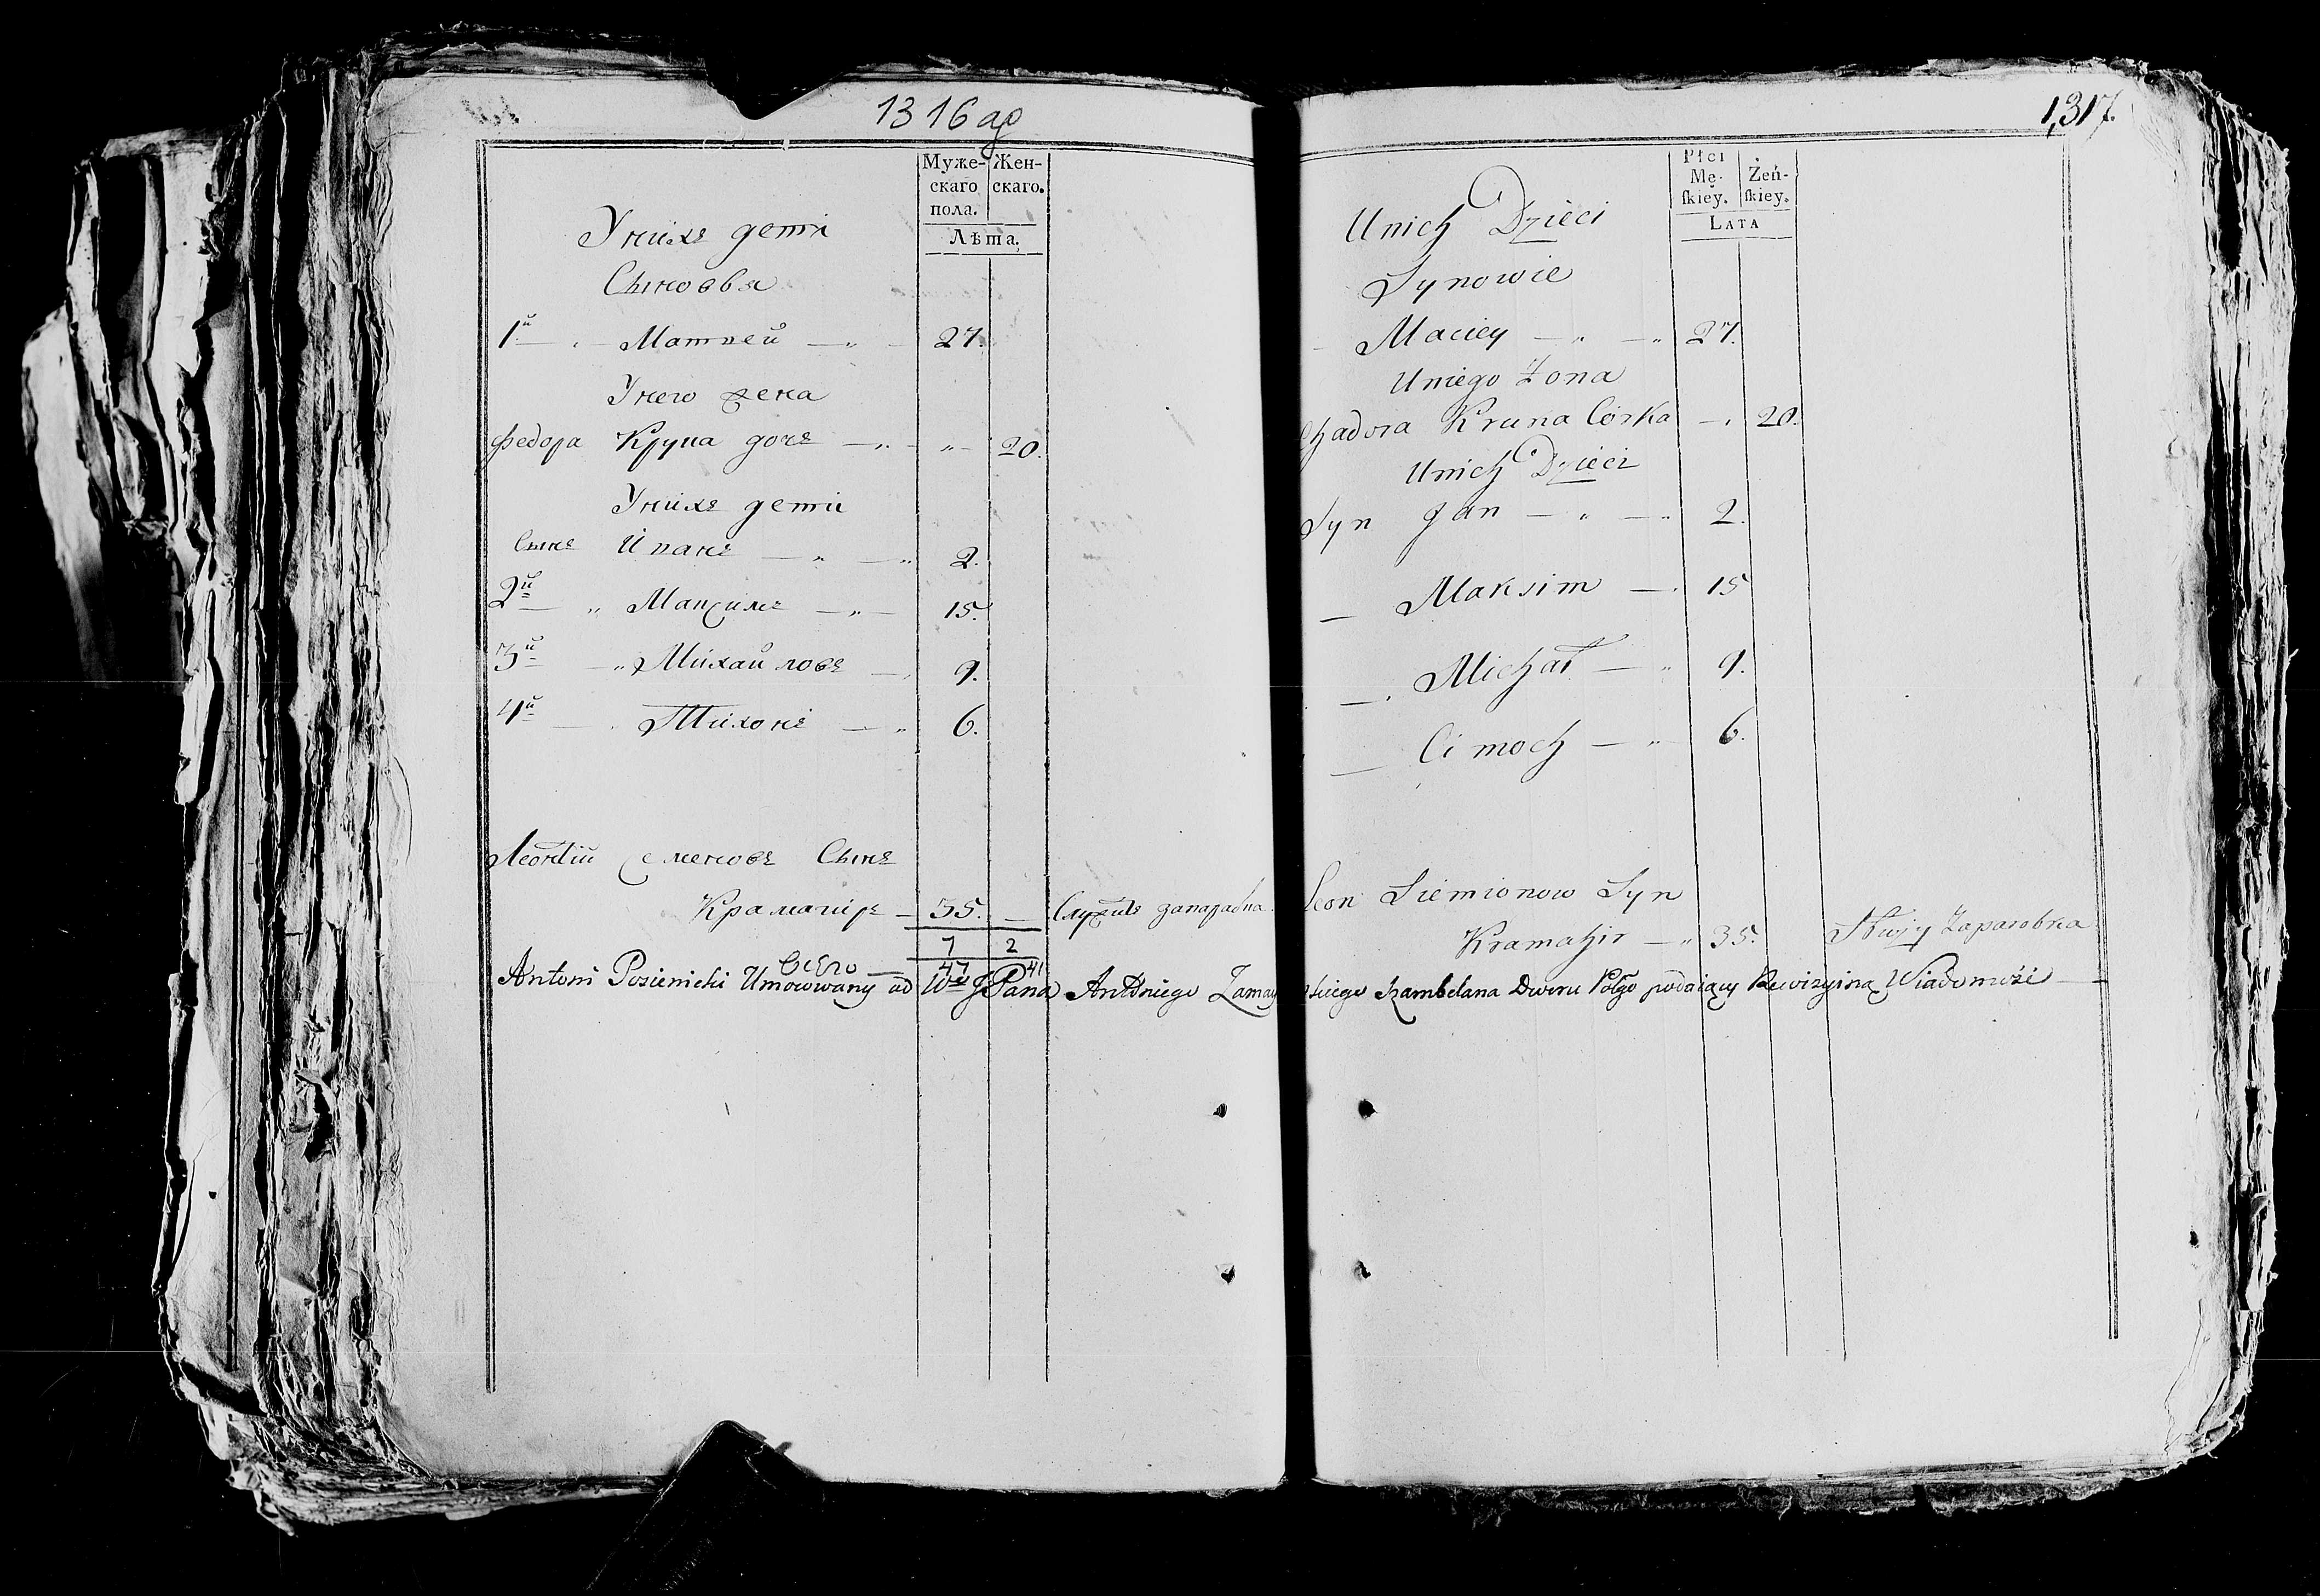 1316 аф
Муже-
скаго
пола.
Жен-
скаго.
Лѣта.
Унихъ дети
Сыновья
1й Матвей 27.
Унего жена
Федора Круца дочь 20.
Унихъ дети
Сынъ Иванъ 2.
2й Максимъ 15.
3й Михайловъ 9.
4й Тихонъ 6.
Леонтий Семеновъ Сынъ
Крамачиръ 35. Служитъ
7 2
Всего 47 41
1,317.
Płci
Mę-
ſkiey.
Żeń-
ſkiey.
LATA
Unich Dzieci
Synowie
Maciey 27.
Uniego Żona
Chadora Kruna Córka 20.
Unich Dzieci
Syn Jan 2.
Maksim 15
Michał 9.
Cimoch 6.
Leon Siemionow Syn
Kramachir 35. Służy Zaparobka
Antoni Umocowany od W° J Pana Antoniego Zamayskiego Szambelana Dworu Polgo podaiący Rewizyiną Wiadomość